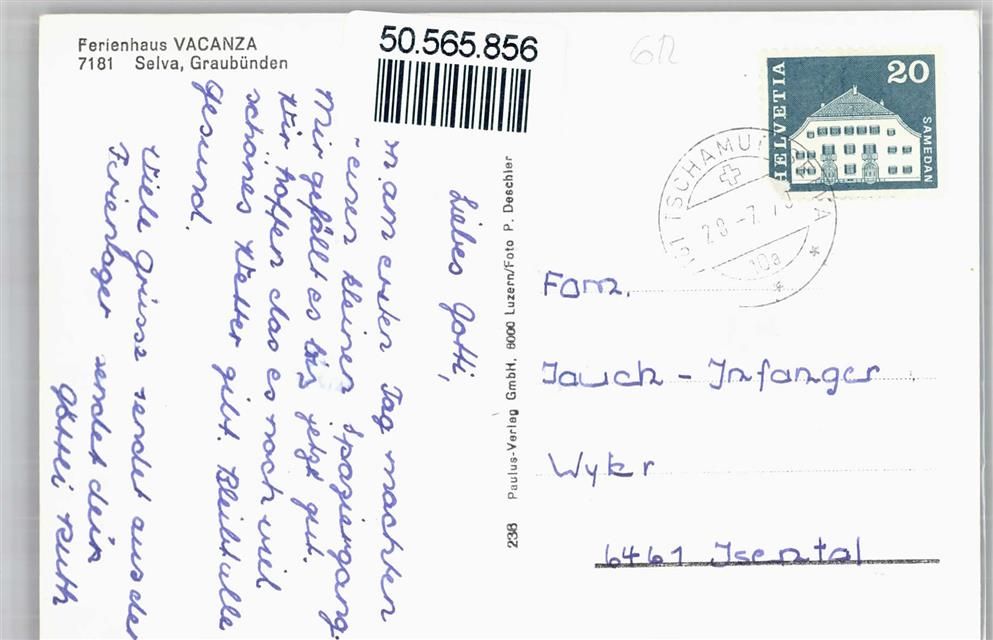 Ferienhaus VACANZA
7181 Selva, Graubünden
50.565.856
612
HELVETIA
20
SAMEDAN
TSCHAMUT
28.-7.7
10a
Liebes Gotti,
am ersten Tag machten
einen kleinen Spaziergang.
Mir gefällt es bis jetzt gut.
Wir hoffen das es noch viel
schönes Wetter gibt. Bleibt alle
Gesund.
Viele Grüsse sendet aus der
Ferienlager sendet dein
Göttei Ruth
238 Paulus-Verlag GmbH, 6000 Luzern/Foto P. Deschler
Fam.
Jauch - Infanger
Wyler
6461 Isental